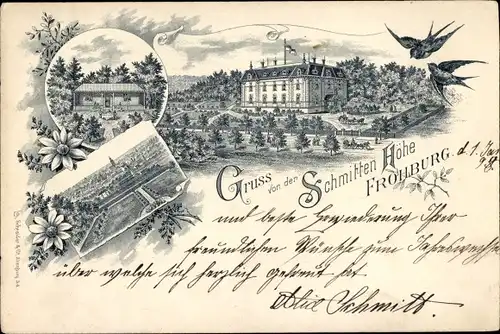 Gruss von den Schmitten Höhe
FROHBURG.
d. 1. Jan.
98.
und beste Erwiederung Ihrer
freundlichen Wünsche zum Jahreswechsel
über welche sich herzlich gefreut hat
Schmitt.